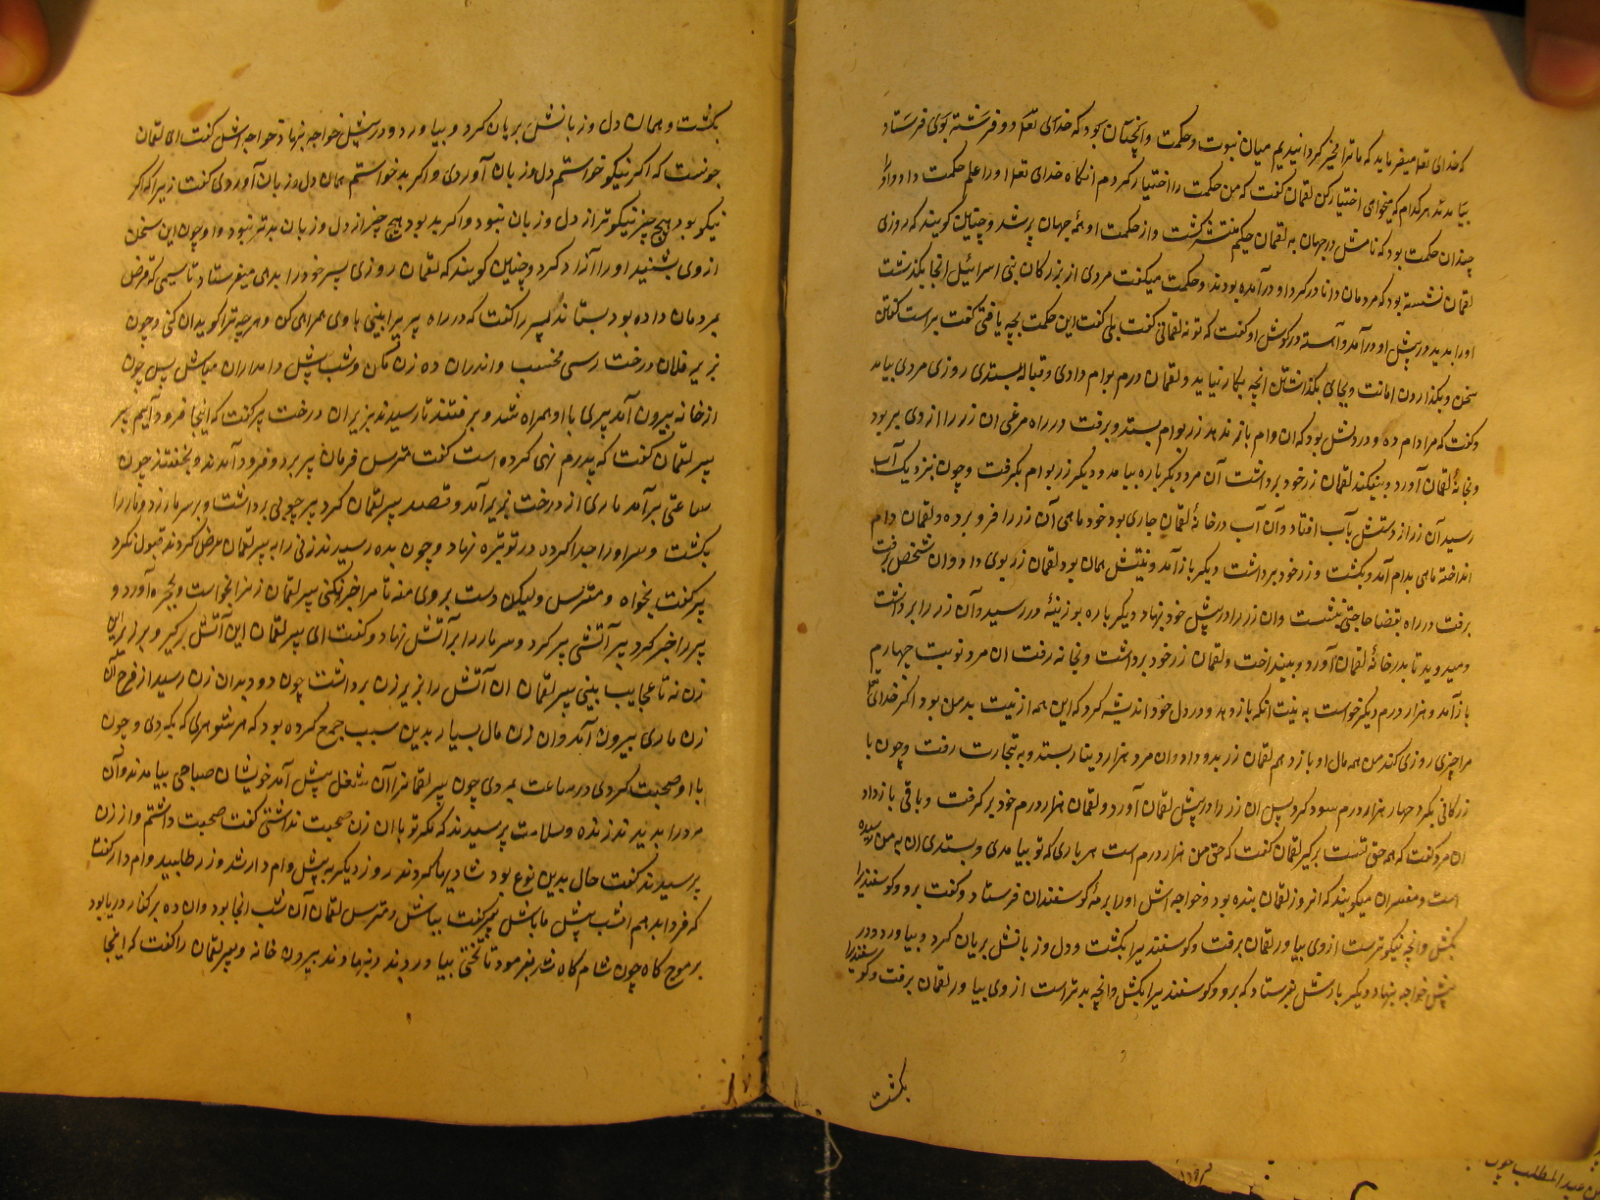 که خدای تعالی میفرماید که ما ترا مخیر گردانیدیم میان نبوت و حکمت و آنچنان بود که خدای تعالی دو فرشته بوی فرستاد
بیامدند هر کدام که میخواهی اختیار کن لقمان گفت که من حکمت را اختیار کردم آنگاه خدای تعالی او را علم حکمت داد و او را
چندان حکمت بود که نامش در جهان به لقمان حکیم منتشر گشت و از حکمت او همه جهان پر شد و چنین گویند که روزی
لقمان نشسته بود که مردمان دانا در گرد او درآمده بودند و حکمت میگفت مردی از بزرگان بنی اسرائیل آنجا بگذشت
او را بدید در پیش او درآمد و آهسته در گوش او گفت که تو نه لقمانی گفت بلی گفت این حکمت بچه یافتی گفت براست گفتن
سخن و بگذاردن امانت و بجای بگذاشتن آنچه بکار نیاید و لقمان درم بوام دادی و قباله بستدی روزی مردی بیامد
و گفت که مرا وام ده و در دلش بود که آن وام باز ندهد زر بوام بستد و برفت در راه مرغی آن زر را از وی بربود
و بخانه لقمان آورد و بیفکند لقمان زر خود برداشت آن مرد دیگر باره بیامد و دیگر زر بوام بگرفت و چون بنزدیک آب
رسید آن زر از دستش بآب افتاد و آن آب در خانه لقمان جاری بود خود ماهی آن زر را فرو برده و لقمان دام
انداخته ماهی بدام آمد و بکشت و زر خود برداشت دیگر باز آمد و نیتش همان بود لقمان زر بوی داد و آن شخص برفت
برفت در راه بقضا حاجتی بنشست و آن زر را در پیش خود بنهاد دیگر باره بوزینه در رسید و آن زر را برداشت
و میدوید تا بدر خانه لقمان آورد و بینداخت و لقمان زر خود برداشت و بخانه رفت آن مرد نوبت چهارم
باز آمد و هزار درم دیگر خواست به نیت آنکه باز دهد و در دل خود اندیشه کرد که این همه از نیت بد من بود اگر خدای تعالی
مرا چیزی روزی کند من همه مال او باز دهم لقمان زر بدو داد و آن مرد هزار دینار بستد و به تجارت رفت و چون با
زرگانی بکرد چهار هزار درم سود کرد پس آن زر را در پیش لقمان آورد و لقمان هزار درم خود برگرفت و باقی باز داد
آن مرد گفت که همه حق تست برگیر لقمان گفت که حق من هزار درم است هر باری که تو بیامدی و بستدی آن به من رسیده
است و مفسران میگویند که آنروز لقمان بنده بود و خواجه اش او را برمه گوسفندان فرستاد و گفت برو و گوسفندیرا
بکش و آنچه نیکوترست از وی بیاور لقمان برفت و گوسفندیرا بکشت و دل و زبانش بریان کرد و بیاورد و در
پیش خواجه بنهاد دیگر بارش بفرستاد که برو و گوسفندیرا بکش و آنچه بدتر است از وی بیاور لقمان برفت و گوسفندیرا
بکشت
بکشت و همان دل و زبانش بریان کرد و بیاورد و در پیش خواجه بنهاد خواجه اش گفت ای لقمان
چونست که اگر نیکو خواستم دل و زبان آوردی و اگر بد خواستم همان دل و زبان آوردی گفت زیرا که اگر
نیکو بود هیچ چیز نیکوتر از دل و زبان نبود و اگر بد بود هیچ چیز از دل و زبان بدتر نبود و او چون این سخن
از وی بشنید او را آزاد کرد و چنین گویند که لقمان روزی پسر خود را بدهی میفرستاد تا سیمی که قرض
بمردمان داده بود بستاند پسر را گفت که در راه پیریرا بینی با وی همراهی کن و هر چه ترا گوید آن کنی و چون
بزیر فلان درخت رسی مخسب و اندر آن ده زن مکن و شب پیش وامداران مباش پس چون
از خانه بیرون آمد پیری با او همراه شد و برفتند تا رسیدند بزیر آن درخت پیر گفت که اینجا فرود آییم پیر
پسر لقمان گفت که پدرم نهی کرده است گفت مترس فرمان پیر برد و فرود آمدند و بخفتند چون
ساعتی برآمد ماری از درخت بزیر آمد و قصد پسر لقمان کرد پیر چوبی برداشت و بر سر مار زد و مار را
بکشت و سر او را جدا کرده در توبره نهاد و چون بده رسیدند زنی را به پسر لقمان عرض کردند قبول نکرد
پیر گفت بخواه و مترس ولیکن دست بروی منه تا مرا خبر نکنی پسر لقمان زن را بخواست و بحجره آورد و
پیر را خبر کرد پیر آتشی پر کرد و سر مار را بر آتش نهاد و گفت ای پسر لقمان این آتش برگیر و بزیر این
زن نه تا عجایب بینی پسر لقمان آن آتش را بزیر زن برداشت چون دود بدان زن رسید از فرج آن
زن ماری بیرون آمد و آن زن مال بسیار بدین سبب جمع کرده بود که هر شوهری که بکردی و چون
با او صحبت کردی در ساعت بمردی چون پسر لقمانرا آن شغل پیش آمد خویشان صباحی بیامدند و آن
مرد را بدیدند زنده و سلامت پرسیدند که مگر تو با آن زن صحبت نداشتی گفت صحبت داشتم و از زن
پرسیدند گفت حال بدین نوع بود شادیها کردند روز دیگر به پیش وام دار شد و زر طلبید وام دار گفت
که فردا بدهم امشب پیش ما باش پیر گفت بباش و مترس لقمان آن شب آنجا بود و آن ده بر کنار دریا بود
بر موج گاه چون شام گاه شد بفرمود تا تختی بیاوردند و بنهادند بیرون خانه و پسر لقمان را گفت که اینجا